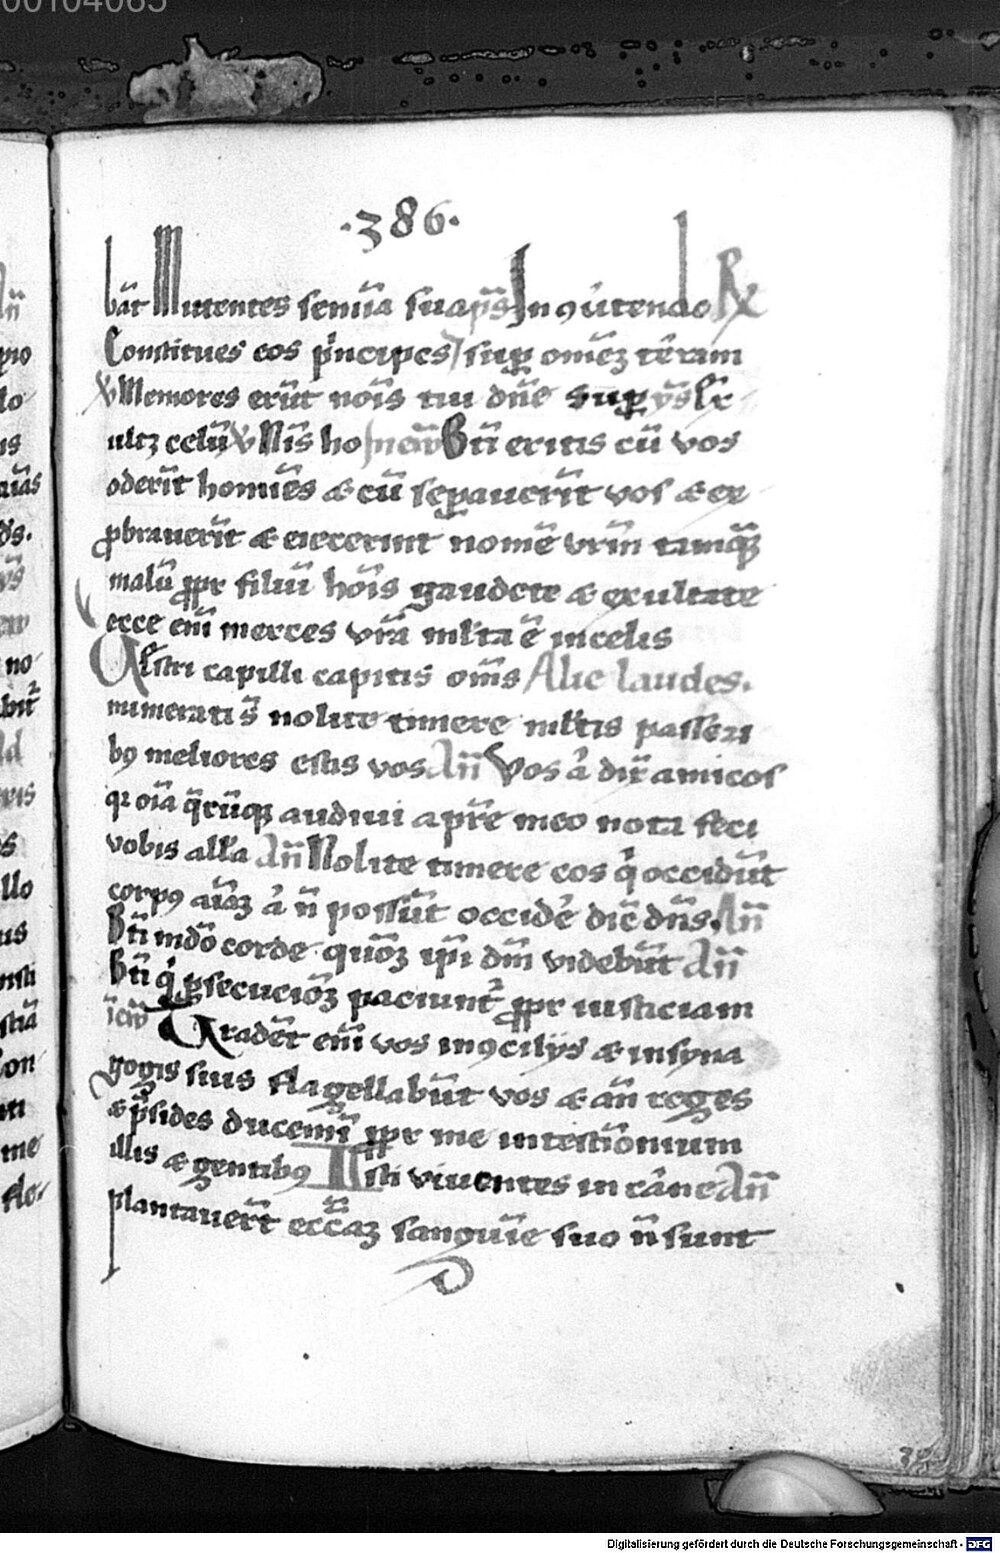 00104065
·386·
bāt Mittentes semīa sua p̄s In ꝯūtendo ℟
Constitues eos p̄ncipes sup̄ om̄eꝫ terram
℣ Memores erūt noīs tui dn̄e
ultꝫ celū ℣ Nīs ho Bt̄i eritis cū vos
oderīt homīes & cū sep̄auerīt vos & ex
ꝓbrauerīt & eiecerint nomē vrm̄ tamqꝫ
malū ꝓpr filiū hoīs gaudete & exultate
ecce em̄ merces vrā ml̄ta ē in celis
Ustri capilli capitis om̄s Alie laudes.
numerati s̄ nolite timere ml̄tis passeri
bꝯ meliores estis vos Añ Vos ā dix̄ amicos
qꝛ oīa q̄cūqꝫ audiui a prē meo nota feci
vobis all̄a Añ Nolite timere eos q̄ occidūt
corpꝯ aīaꝫ ā n̄ possūt occidē dic̄ dn̄s. Añ
Bt̄i mdō corde quōꝫ ip̄i dm̄ videbūt Añ
Bt̄i q̄ ꝑsecuciōꝫ paciunt̄ ꝓpr iusticiam
Tradēt em̄ vos in ꝯcilijs & in syna
gogis suis flagellabūt vos & an̄ reges
& p̄sides ducemī ꝓpr me in testīonium
illis & gentibꝯ Isti viuentes in carne Añ
plantauerūt ecc̄aꝫ sanguīe suo n̄ sunt
Digitalisierung gefördert durch die Deutsche Forschungsgemeinschaft - DFG